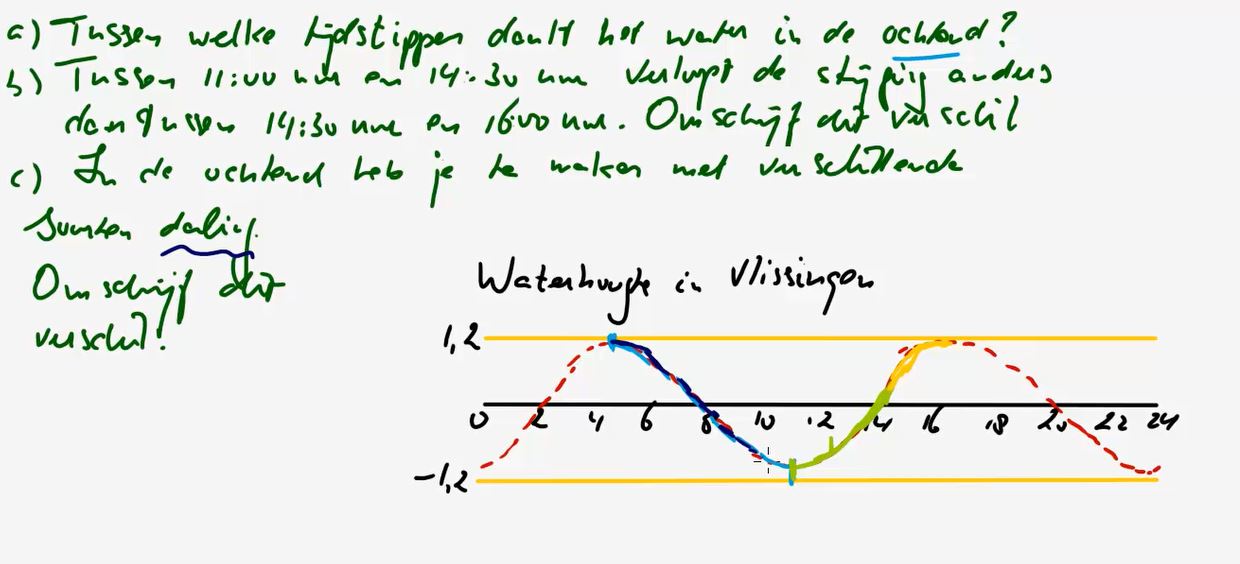 a) Tussen welke tijdstippen daalt het water in de ochtend?
b) Tussen 11:00 uur en 14:30 uur verloopt de stijging anders
dan tussen 14:30 uur en 16:00 uur. Omschrijf dit verschil
c) In de ochtend heb je te maken met verschillende
soorten daling.
Omschrijf dit
verschil!
Waterhoogte in Vlissingen
1,2
0 2 4 6 8 10 12 14 16 18 20 22 24
-1,2